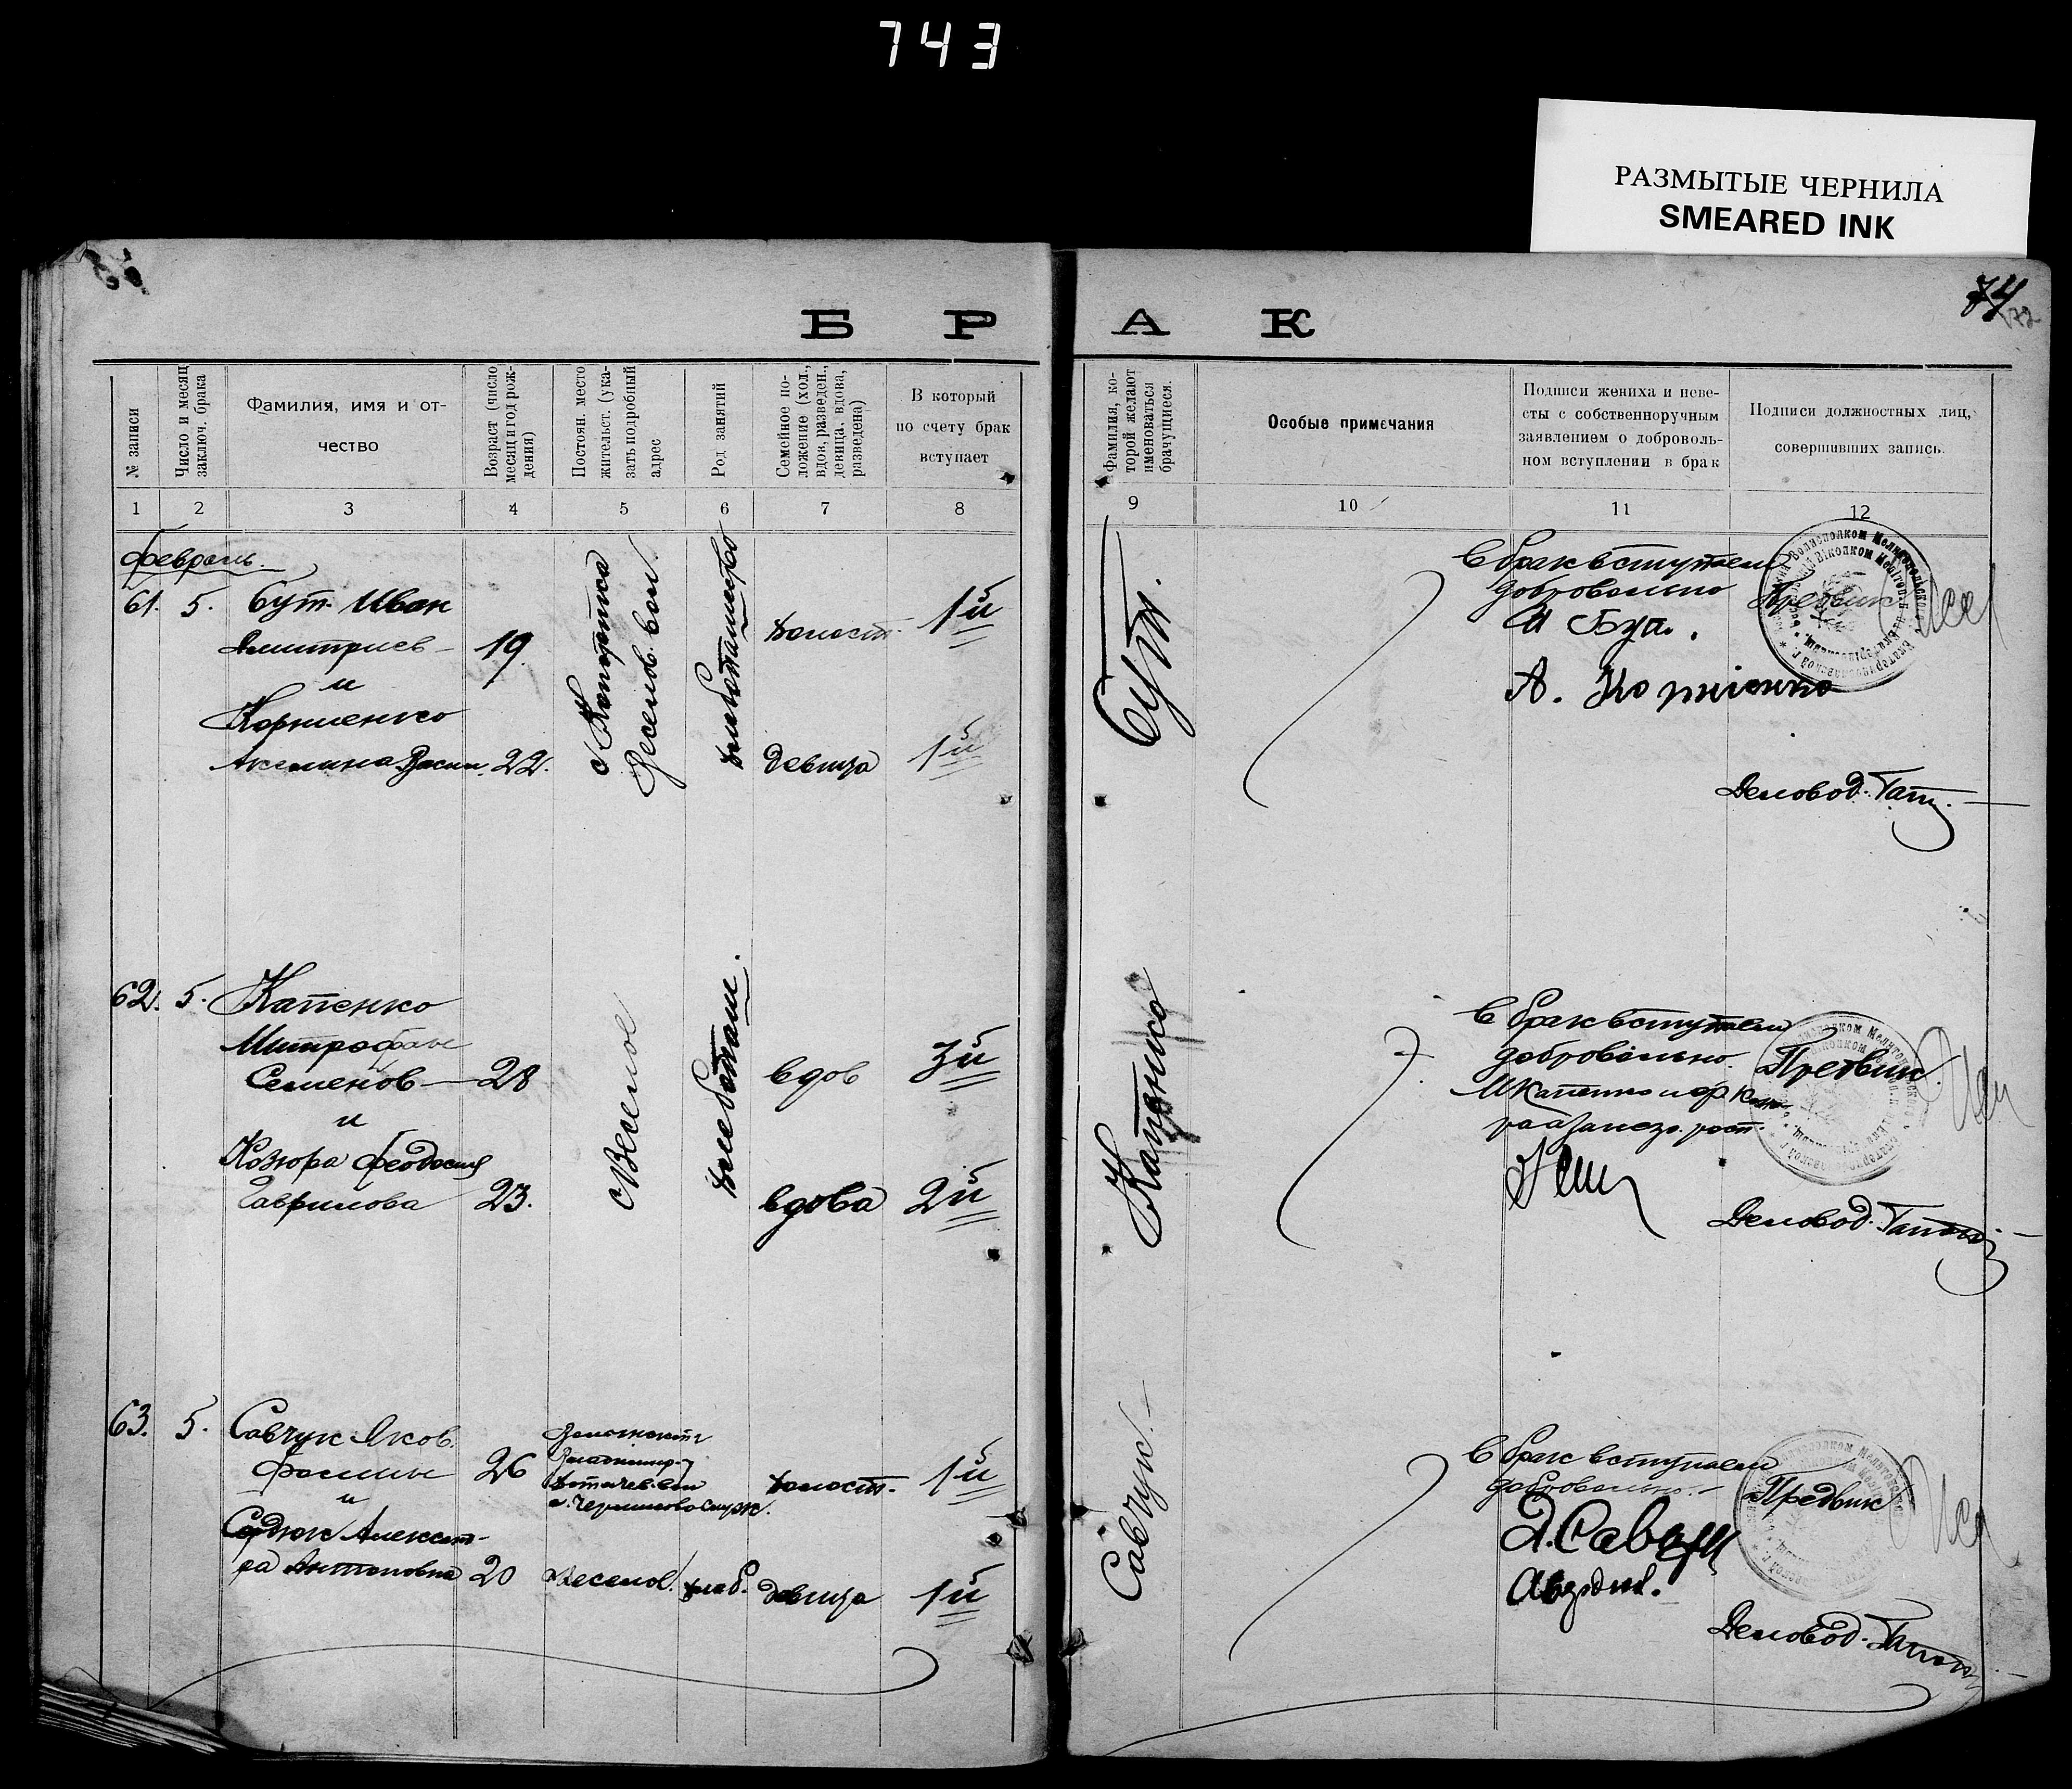 743
РАЗМЫТЫЕ ЧЕРНИЛА
SMEARED INK
74
Б Р А К
№ записи
Число и месяц
заключ. брака
Фамилия, имя и от-
чество
Возраст (число
месяц и год рож-
дения)
Постоян. место
жительст. (ука-
зать подробный
адрес
Род занятий
Семейное по-
ложение (хол.,
вдов, разведен.,
девица, вдова,
разведена)
В который
по счету брак
вступает
Фамилия, ко-
торой желают
именоваться
брачущиеся.
Особые примечания
Подписи жениха и неве-
сты с собственноручным
заявлением о доброволь-
ном вступлении в брак
Подписи должностных лиц,
совершивших запись.
1 2 3 4 5 6 7 8 9 10 11 12
февраль.
61. 5. Бут Иван
Дмитриев 19.
и
Корниенко
Акелина Васил. 22.
Веселов. вол.
хлебопашество
холост. 1й
девица 1й
Бут.
В брак вступаем
добровольно
И Бут.
А. Корниенко
Предвик
Деловод.
62. 5. Капенко
Митрофан
Семенов 28
и
Козюра Феодосия
Гаврилова 23.
с Веселое
хлебопаш.
вдов 3й
вдова 2й
Капенко
В брак вступаем
добровольно.
М Капенко и
Предвик.
Деловод.
63. 5. Савчук Яков.
Фомин 26
и
Сердюк Александ-
ра Антоновна 20
Веселов. хлеб.
холост. 1й
девица 1й
Савчук.
В брак вступаем
добровольно.
Предвик
Деловод.